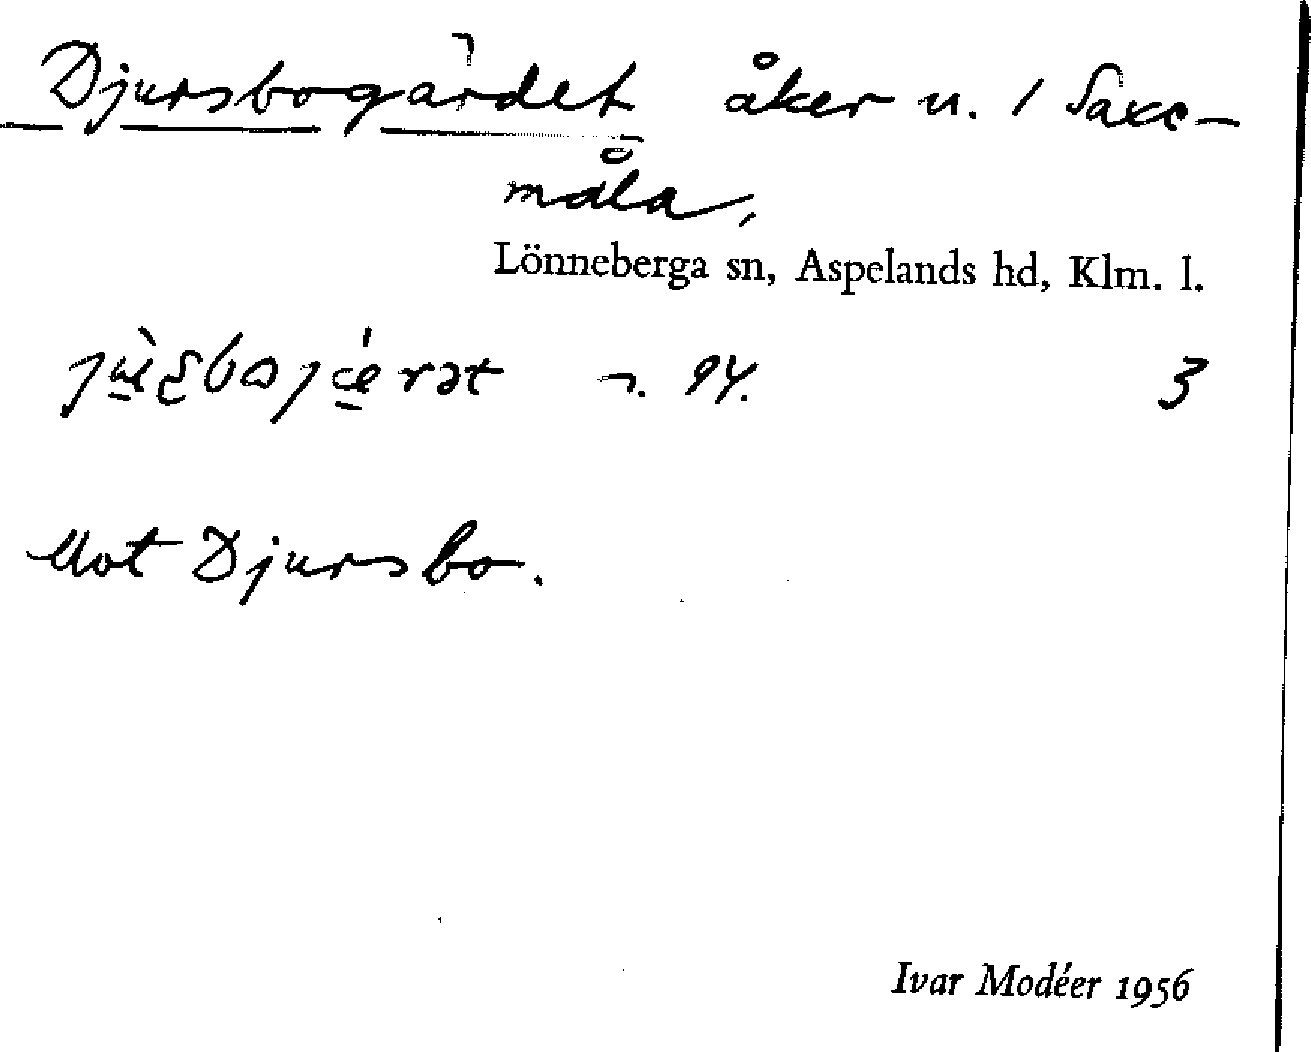 Djursbogärdet åker u. 1 Saxe-
måla,
Lönneberga sn, Aspelands hd, Klm. l.
3
Mot Djursbo.
Ivar Modéer 1956